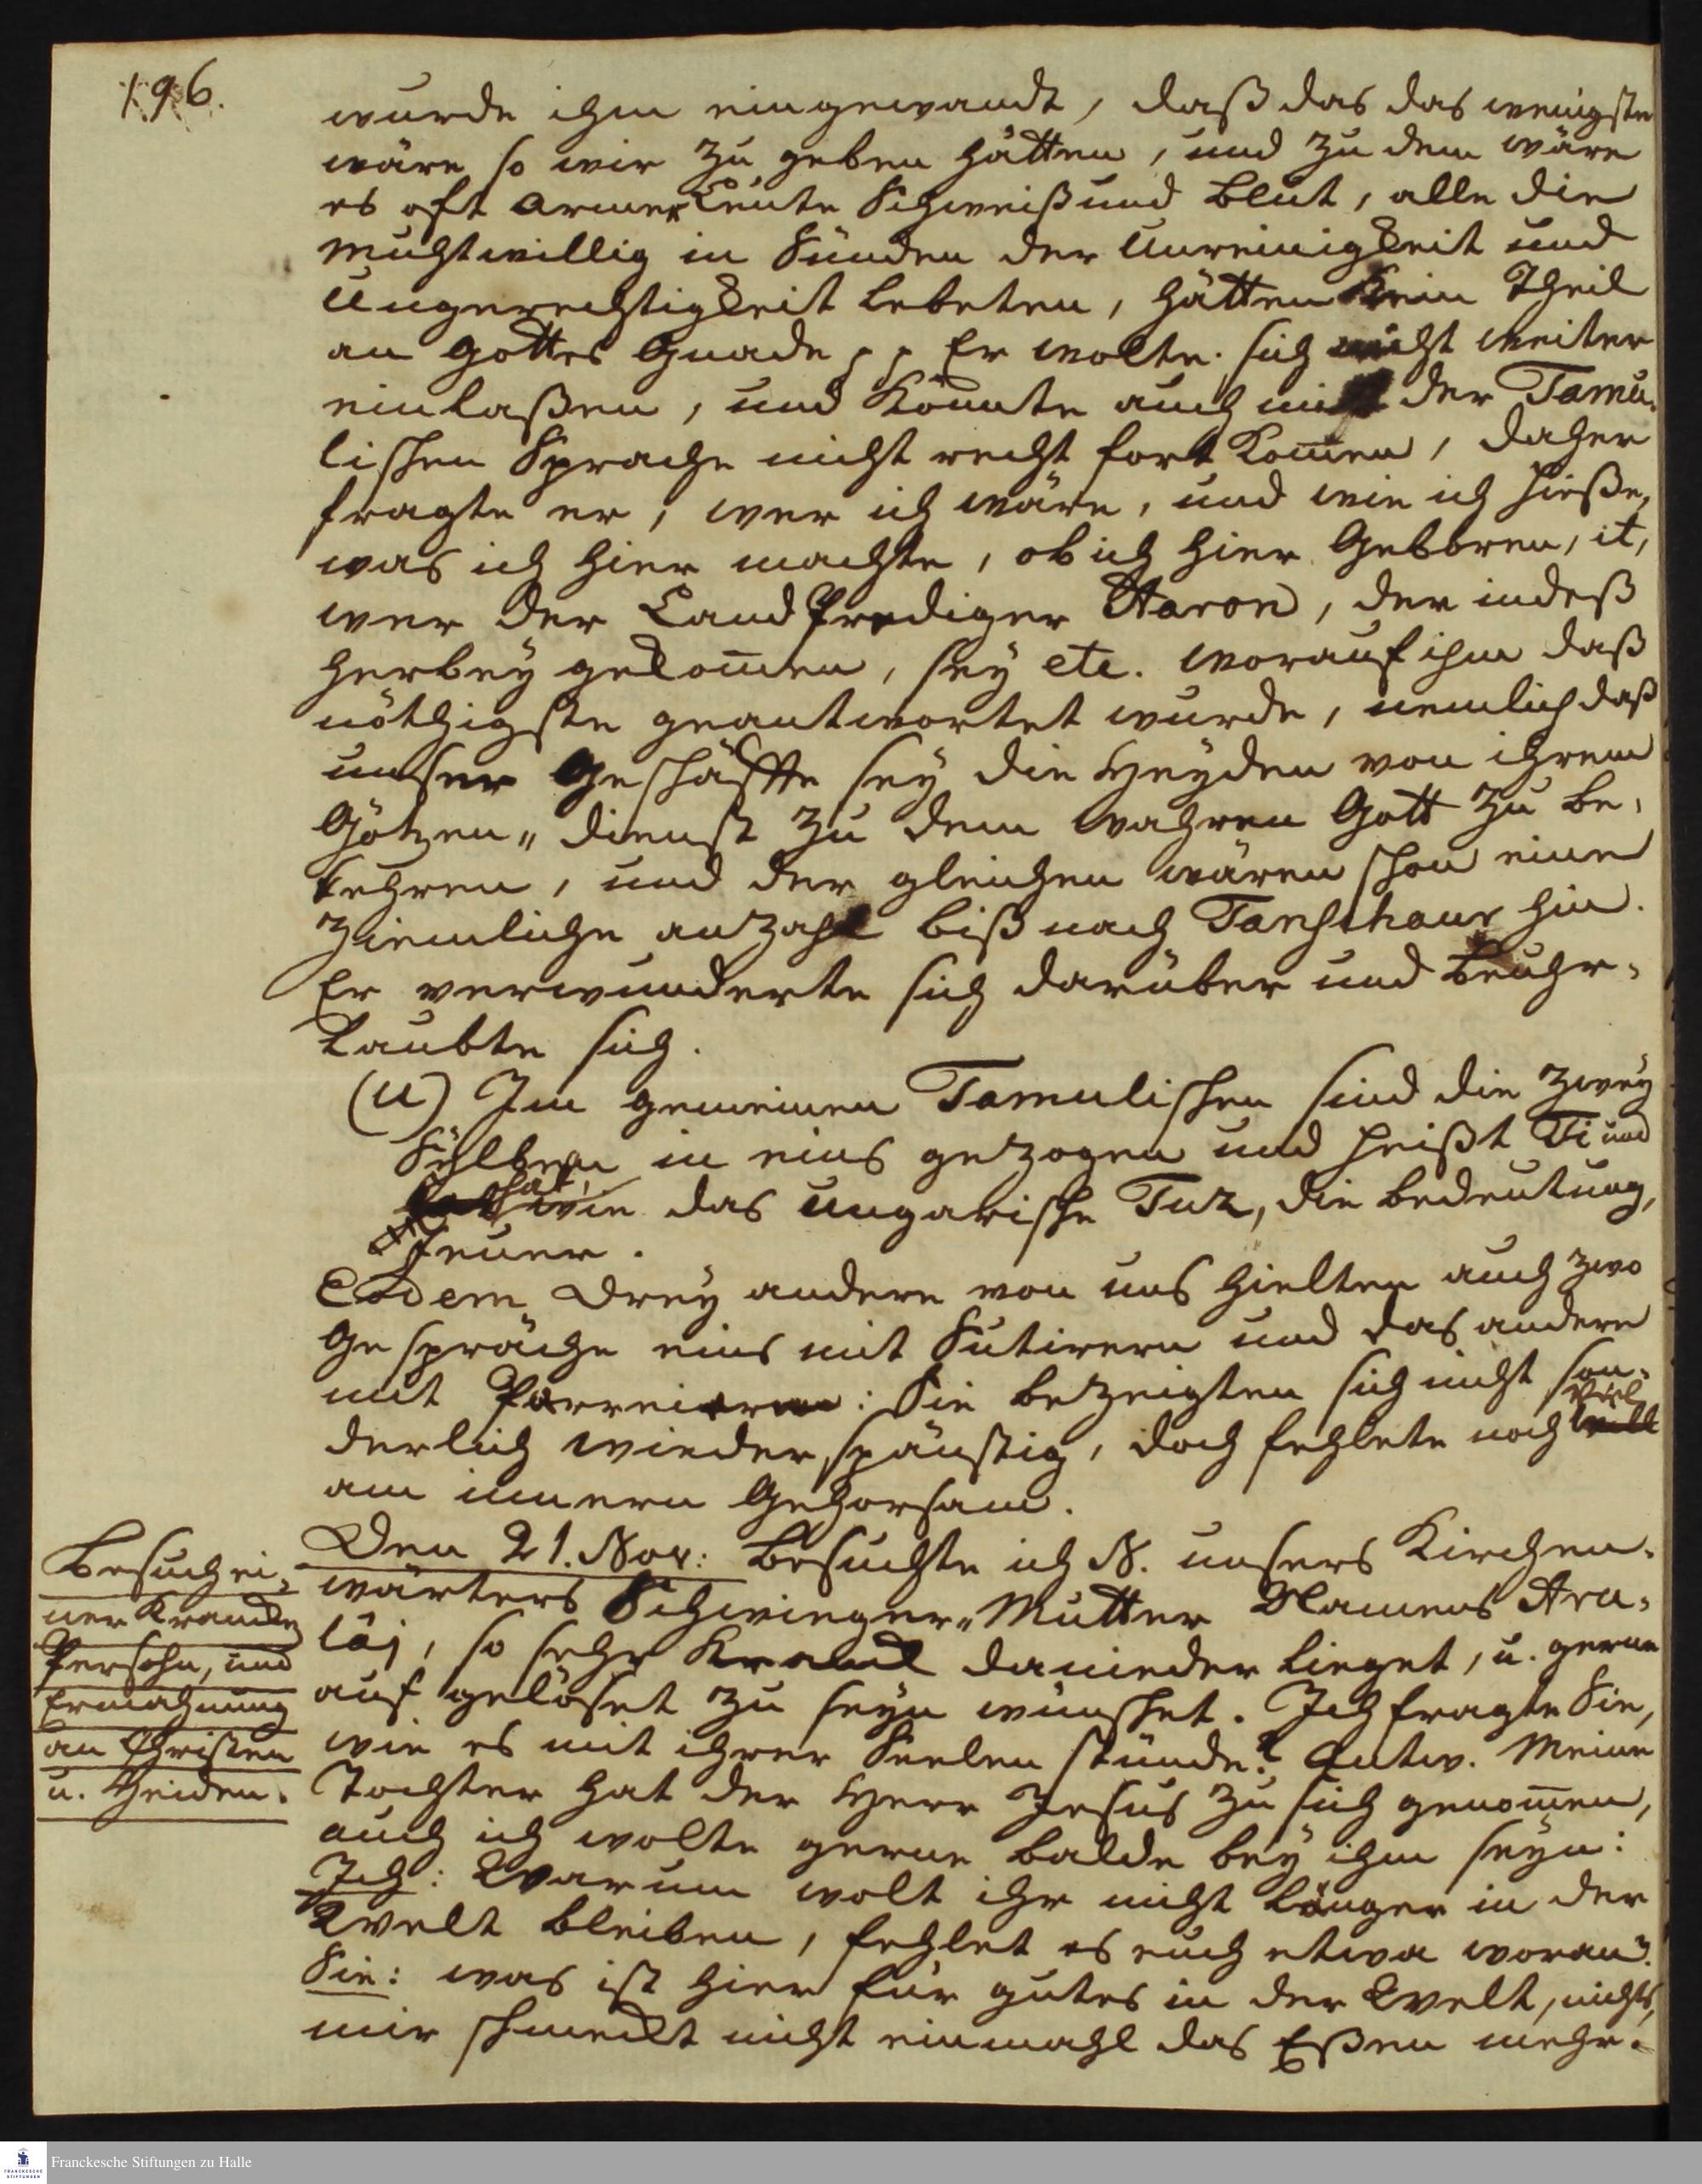 196.
wurde ihm eingewandt, daß das das wenigste
wäre so wir zu geben hätten, und zu dem wäre
es oft armer Leute Schweiß und Blut, alle die
muthwillig in Sünden der Unreinigkeit und
Ungerechtigkeit lebeten, hätten kein Theil
an Gottes Gnade pp Er wolte sich nicht weiter
einlaßen, und konnte auch mit der Tamu-
lischen Sprache nicht recht fort kom̅en, daher
fragte er, wer ich wäre, und wie ich hieße,
was ich hier machte, ob ich hier gebohren, it,
wer der Land Prediger Aaron, der indeß
herbey gekom̅en, sey etc. worauf ihm daß
nöthigste geantwortet wurde, nemlich daß
unser Geschäffte sey die Heyden von ihrem
Götzen-dienst zu dem wahren Gott zu be-
kehren, und der gleichen wären schon eine
ziemliche anzahl biß nach Tanschaur hin.
Er verwunderte sich darüber und beuhr-
laubte sich.
(u) Im gemeinen Tamulischen sind die zwey
Sylben in eins gezogen und heißt Ti und
hat, wie das Ungarische Tuz, die Bedeutung,
Feuer.
Eodem Drey andere von uns hielten auch zwo
Gespräche eins mit Sutirern und das andere
mit Parreiern: Sie bezeigten sich nicht son-
derlich wiederspänstig, doch fehlete noch viel
am innern Gehorsam.
Den 21. Nov: besuchte ich N. unsers Kirchen-
wärters Schwieger-Mutter Namens Aru-
läj, so sehr kranck danieder lieget, u. gerne
auf gelöset zu seyn wünschet. Ich fragte Sie,
wie es mit ihrer Seelen stünde? Antw. Meine
Tochter hat der Herr Jesus zu sich genom̅en,
auch ich wolte gerne balde bey ihm seyn:
Ich: Warum wolt ihr nicht länger in der
Welt bleiben, fehlet es euch etwa woran?
Sie: was ist hier für gutes in der Welt, nichts,
mir schmeckt nicht einmahl das Eßen mehr.
Besuch ei-
ner krancken
Persohn, und
Ermahnung
an Christen
u. Heiden.
FRANCKESCHE STIFTUNGEN
Franckesche Stiftungen zu Halle